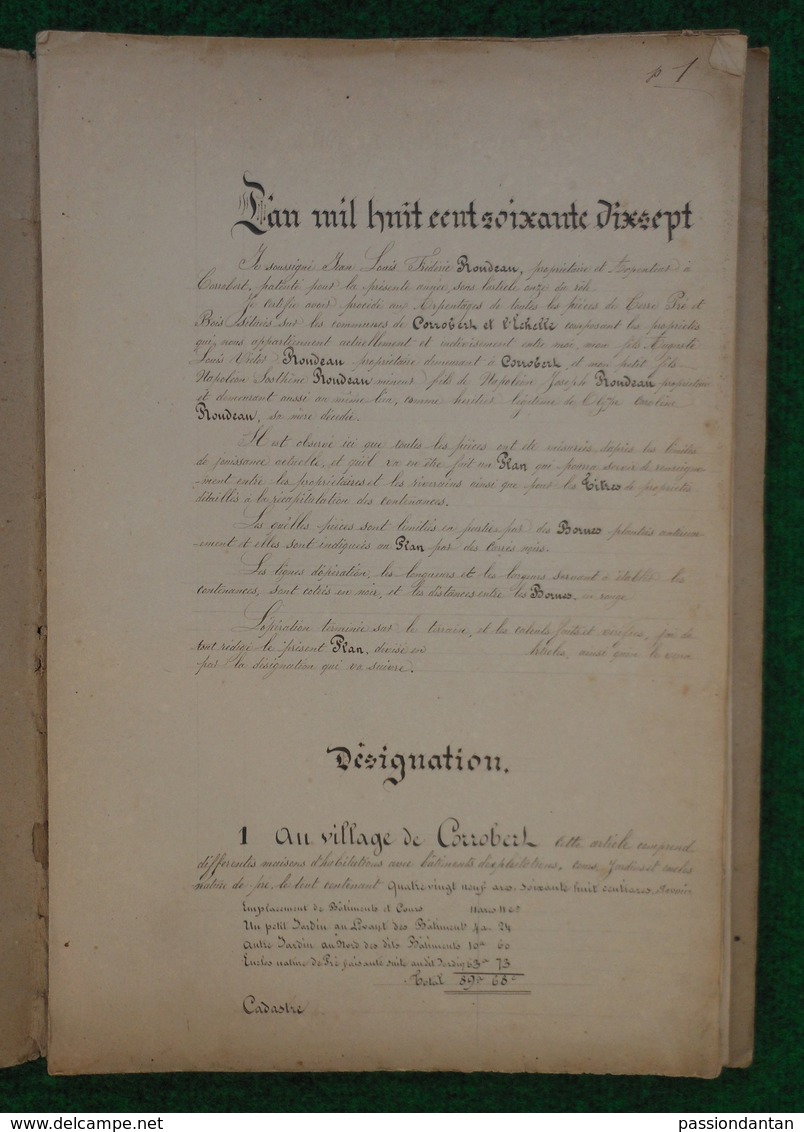 p 1
L'an mil huit cent soixante dixsept
Je soussigné Jean Louis Frédéric Rondeau, propriétaire et Arpenteur à
Corrobert, patenté pour la présente année, sous l'article onze du rôle
Je certifie avoir procédé au Arpentages de toutes les pièces de Terre Pré et
Bois situées sur les communes de Corrobert et l'Echelle composant les propriétés
qui nous appartiennent actuellement et indivisement entre moi, mon fils Auguste
Louis Victor Rondeau propriétaire demeurant à Corrobert, et mon petit fils
Napoléon Sosthène Rondeau mineur fils de Napoléon Joseph Rondeau propriétaire
et demeurant aussi au même lieu, comme héritier légitime de Caroline
Rondeau, sa mère décédée.
Il est observé ici que toutes les pièces ont été mesurées d'après les limites
de jouissance actuelle, et qu'il va en être fait un Plan qui pourra servir de renseigne
ment entre les propriétaires et les riverains ainsi que pour les Titres de propriétés
détaillés à la récapitulation des contenances.
Les qu'elles pièces sont limitées en partie par des Bornes plantées antérieure
ement et elles sont indiquées au Plan par des carrés noirs.
Les lignes d'opération, les longueurs et les largeurs servant à établir les
contenances, sont cotées en noir, et les distances entre les Bornes, en rouge
L'opération terminée sur le terrain, et les calculs faits et vérifiés, j'ai de
tout rédigé le présent Plan, divisé en articles, ainsi qu'on le verra
par la désignation qui va suivre.
Désignation.
1 Au village de Corrobert Cette article comprend
différentes maisons d'habitations avec bâtiments d'exploitations, cours Jardins et enclos
nature de pré, le tout contenant quatre vingt neuf ares soixante huit centiares, Savoir
Emplacement de Bâtiments et Cours 11 ares 11 ct
Un petit Jardin au Levant des Bâtiment 4a 24
Autre Jardin au Nord des dits Bâtiments 10a 60
Enclos nature de Pré faisant suite au dit Jardin 63a 73
Total 89a 68
Cadastre
passiondantan